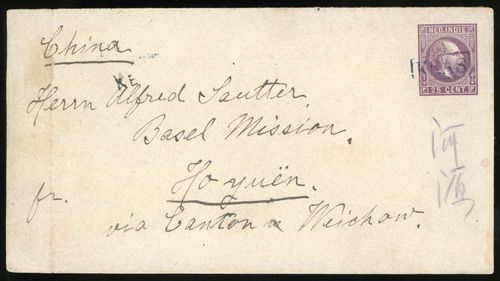 China
NED. INDIE
Herrn Alfred Sautter.
Basel Mission.
25 CENT.
Ho yuën.
fr.
via Canton & Weichow.
河